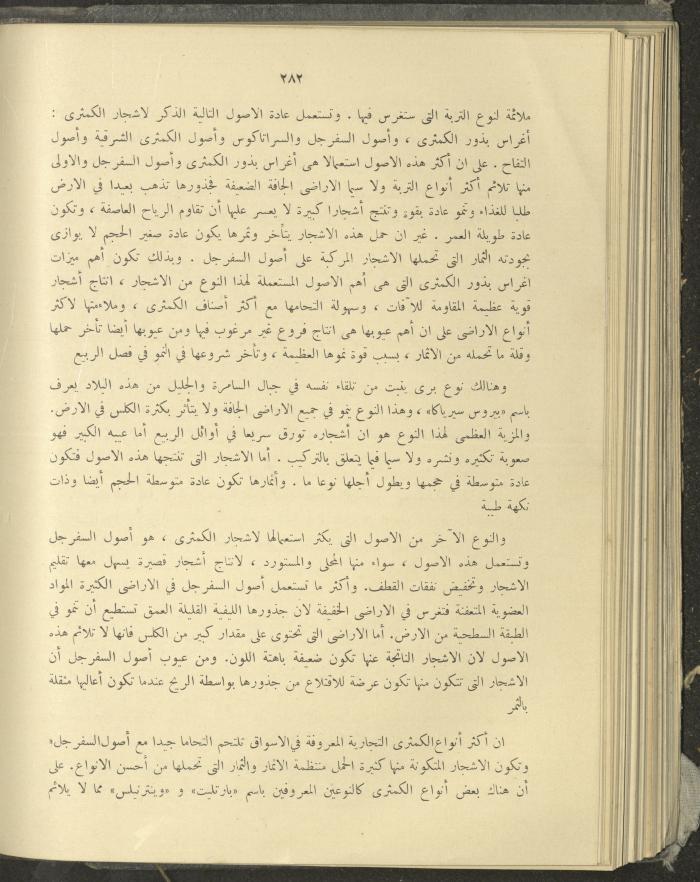 ٢٨٢
ملائمة لنوع التربة التى ستغرس فيها . وتستعمل عادة الاصول التالية الذكر لاشجار الكمثرى :
أغراس بذور الكمثرى ، وأصول السفرجل والسراتاكوس وأصول الكمثرى الشرقية وأصول
التفاح . على ان أكثر هذه الاصول استعمالا هى أغراس بذور الكمثرى وأصول السفرجل والاولى
منها تلائم أكثر أنواع التربة ولا سيما الاراضى الجافة الضعيفة فجذورها تذهب بعيدا في الارض
طلبا للغذاء وتنمو عادة بقوة وتنتج أشجارا كبيرة لا يعسر عليها أن تقاوم الرياح العاصفة ، وتكون
عادة طويلة العمر . غير ان حمل هذه الاشجار يتأخر وثمرها يكون عادة صغير الحجم لا يوازى
بجودته الثمار التى تحملها الاشجار المركبة على أصول السفرجل . وبذلك تكون أهم ميزات
اغراس بذور الكمثرى التى هى أهم الاصول المستعملة لهذا النوع من الاشجار ، انتاج أشجار
قوية عظيمة المقاومة للآفات ، وسهولة التحامها مع أكثر أصناف الكمثرى ، وملاءمتها لاكثر
أنواع الاراضى على ان أهم عيوبها هى انتاج فروع غير مرغوب فيها ومن عيوبها أيضا تأخر حملها
وقلة ما تحمله من الاثمار ، بسبب قوة نموها العظيمة ، وتأخر شروعها في النمو في فصل الربيع
وهنالك نوع برى ينبت من تلقاء نفسه في جبال السامرة والجليل من هذه البلاد يعرف
باسم «بيروس سيرياكا» ، وهذا النوع ينمو في جميع الاراضى الجافة ولا يتأثر بكثرة الكلس في الارض.
والمزية العظمى لهذا النوع هو ان أشجاره تورق سريعا في أوائل الربيع أما عيبه الكبير فهو
صعوبة تكثيره ونشره ولا سيما فيما يتعلق بالتركيب . أما الاشجار التى تنتجها هذه الاصول فتكون
عادة متوسطة في حجمها ويطول أجلها نوعا ما . وأثمارها تكون عادة متوسطة الحجم أيضا وذات
نكهة طيبة
والنوع الآخر من الاصول التى يكثر استعمالها لاشجار الكمثرى ، هو أصول السفرجل
وتستعمل هذه الاصول ، سواء منها المحلى والمستورد ، لانتاج أشجار قصيرة يسهل معها تقليم
الاشجار وتخفيض نفقات القطف. وأكثر ما تستعمل أصول السفرجل في الاراضى الكثيرة المواد
العضوية المتعفنة فتغرس في الاراضى الخفيفة لان جذورها الليفية القليلة العمق تستطيع أن تنمو في
الطبقة السطحية من الارض. أما الاراضى التى تحتوى على مقدار كبير من الكلس فانها لا تلائم هذه
الاصول لان الاشجار الناتجة عنها تكون ضعيفة باهتة اللون. ومن عيوب أصول السفرجل أن
الاشجار التى تتكون منها تكون عرضة للاقتلاع من جذورها بواسطة الريح عندما تكون أعاليها مثقلة
بالثمر
ان أكثر أنواع الكمثرى التجارية المعروفة في الاسواق تلتحم التحاما جيدا مع أصول السفرجل،
وتكون الاشجار المتكونة منها كثيرة الحمل منتظمة الاثمار والثمار التى تحملها من أحسن الانواع. على
أن هناك بعض أنواع الكمثرى كالنوعين المعروفين باسم «بارتليت» و «وينترنيلس» مما لا يلائم